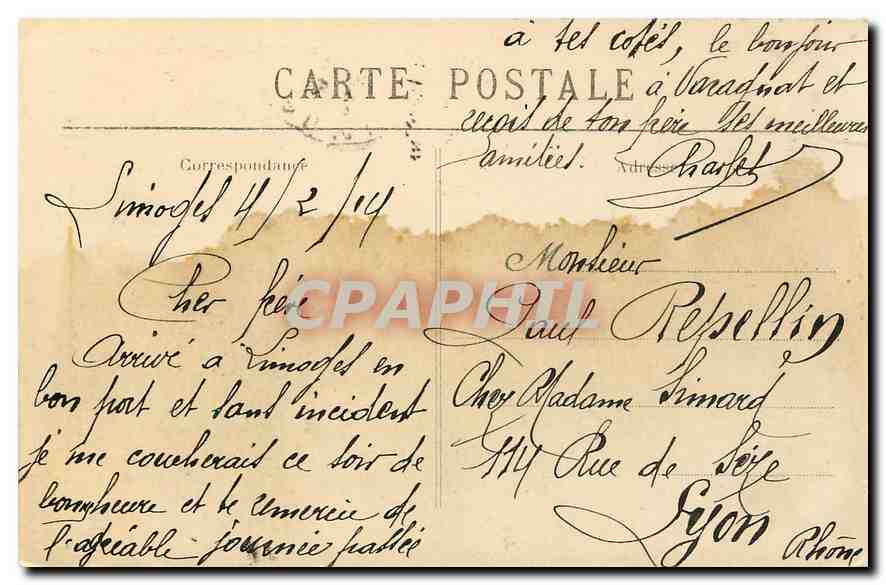 à tes cotés, le bonjour
CARTE POSTALE
à Varagnat et
reçois de ton frère ses meilleures
amitiés. Charles
Correspondance
Adresse
Limoges 4/2/14
Cher frère
Arrivé à Limoges en
bon port et sans incident
je me coucherais ce soir de
bonne heure et te remercie de
l'agréable journée passée
Monsieur
Paul Repellin
Chez Madame Simard
114 Rue de Sèze
Lyon
Rhône
CPAPHIL